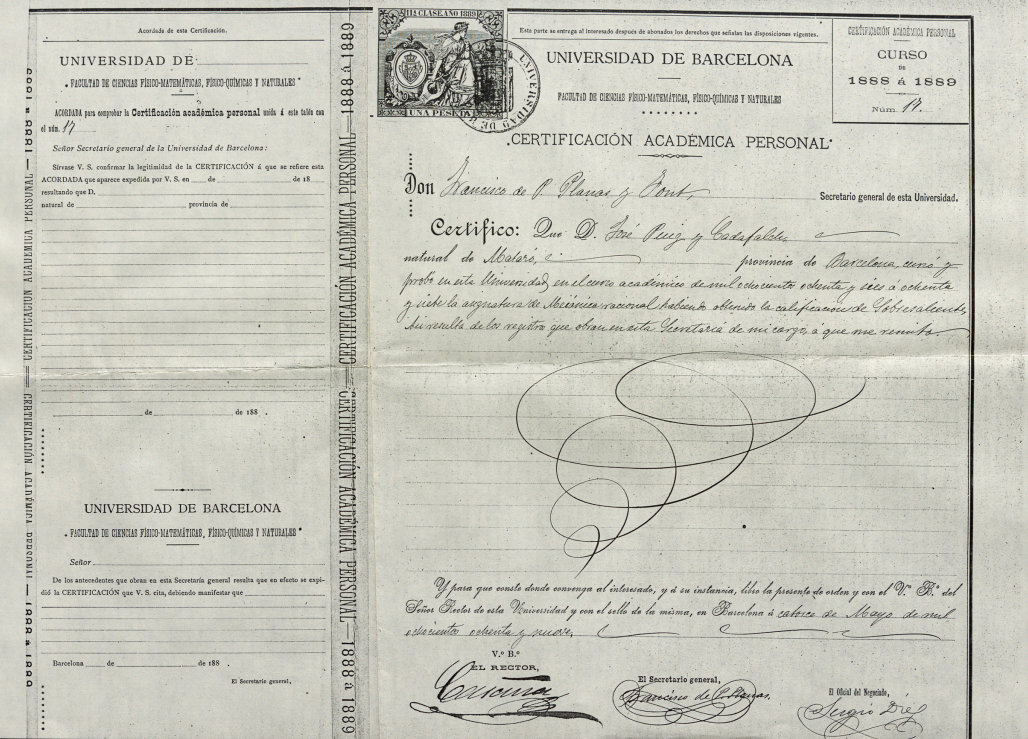 Acordada de esta Certificación.
UNIVERSIDAD DE
FACULTAD DE CIENCIAS FÍSICO-MATEMÁTICAS, FÍSICO-QUÍMICAS Y NATURALES
ACORDADA para comprobar la Certificación académica personal unida á este talón con
el núm. 17
Señor Secretario general de la Universidad de Barcelona:
Sírvase V. S. confirmar la legitimidad de la CERTIFICACIÓN á que se refiere esta
ACORDADA que aparece expedida por V. S. en de de 18
resultando que D.
natural de provincia de
de de 188 .
UNIVERSIDAD DE BARCELONA
FACULTAD DE CIENCIAS FÍSICO-MATEMÁTICAS, FÍSICO-QUÍMICAS Y NATURALES
Señor
De los antecedentes que obran en esta Secretaría general resulta que en efecto se expi-
dió la CERTIFICACIÓN que V. S. cita, debiendo manifestar que
Barcelona de de 188 .
El Secretario general,
CERTIFICACIÓN ACADÉMICA PERSONAL — 1888 á 1889
CERTIFICACIÓN ACADÉMICA PERSONAL — 1888 á 1889
CERTIFICACIÓN ACADÉMICA PERSONAL — 1888 á 1889
CERTIFICACIÓN ACADÉMICA PERSONAL — 1888 á 1889
11ª CLASE AÑO 1889
UNA PESETA
UNIVERSIDAD DE
Esta parte se entrega al interesado después de abonados los derechos que señalan las disposiciones vigentes.
UNIVERSIDAD DE BARCELONA
FACULTAD DE CIENCIAS FÍSICO-MATEMÁTICAS, FÍSICO-QUÍMICAS Y NATURALES
CERTIFICACIÓN ACADÉMICA PERSONAL
CURSO
DE
1888 á 1889
Núm. 17.
CERTIFICACIÓN ACADÉMICA PERSONAL
Don Francisco de P. Planas y Font, Secretario general de esta Universidad.
Certifico: Que D. José Puig y Cadafalch,
natural de Mataró, provincia de Barcelona, cursó y
probó en esta Universidad, en el curso académico de mil ochocientos ochenta y seis á ochenta
y siete la asignatura de Mecánica racional habiendo obtenido la calificación de Sobresaliente,
Así resulta de los registros que obran en esta Secretaría de mi cargo, á que me remito.
Y para que conste donde convenga al interesado, y á su instancia, libro la presente de orden y con el V.º B.º del
Señor Rector de esta Universidad y con el sello de la misma, en Barcelona á catorce de Mayo de mil
ochocientos ochenta y nueve,
V.º B.º
EL RECTOR,
El Secretario general,
Francisco de P. Planas.
El Oficial del Negociado,
Sergio Díe